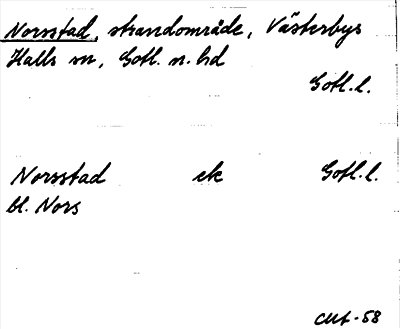 Norsstad, strandområde, Västerbys
Halls sn, Gotl. n. hd
Gotl. l.
Norsstad ek Gotl. l.
bl. Nors
-58